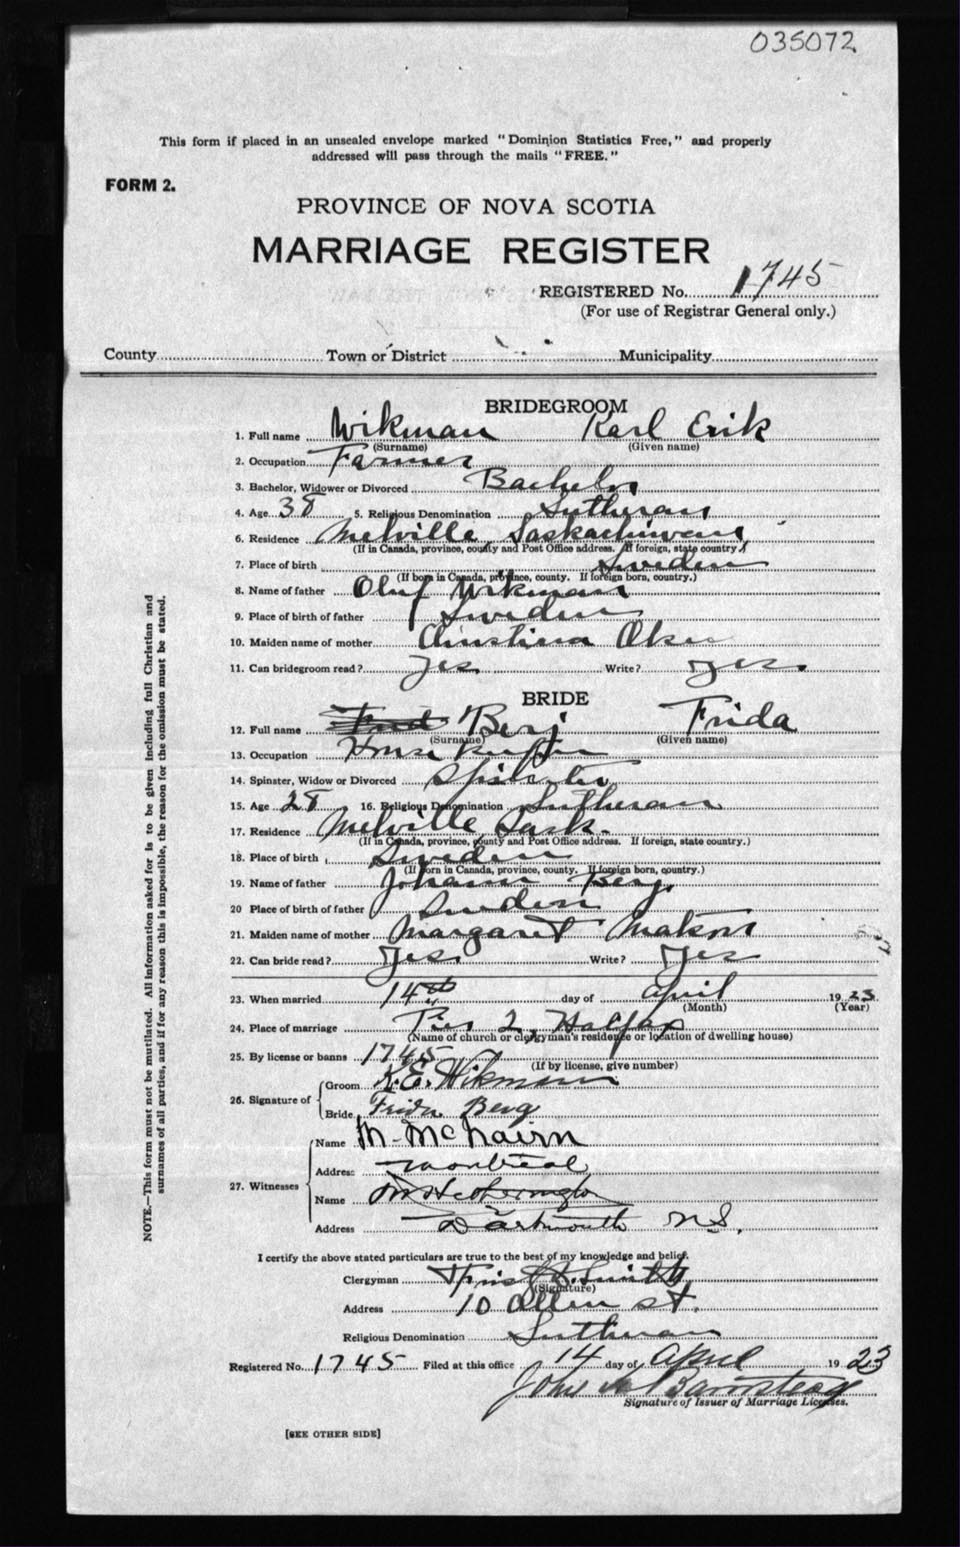 035072
This form if placed in an unsealed envelope marked "Dominion Statistics Free," and properly
addressed will pass through the mails "FREE."
FORM 2.
PROVINCE OF NOVA SCOTIA
MARRIAGE REGISTER
REGISTERED No. 1745
(For use of Registrar General only.)
County Town or District Municipality
BRIDEGROOM
1. Full name Wikman Karl Erik
(Surname) (Given name)
2. Occupation Farmer
3. Bachelor, Widower or Divorced Bachelor
4. Age 38 5. Religious Denomination Lutheran
6. Residence Melville Saskatchewan
(If in Canada, province, county and Post Office address. If foreign, state country)
7. Place of birth Sweden
(If born in Canada, province, county. If foreign born, country.)
8. Name of father Oluf Wikman
9. Place of birth of father Sweden
10. Maiden name of mother Christina
11. Can bridegroom read? Yes Write? Yes
BRIDE
12. Full name Berj Frida
(Surname) (Given name)
13. Occupation Housekeeper
14. Spinster, Widow or Divorced Spinster
15. Age 28 16. Religious Denomination Lutheran
17. Residence Melville Sask.
(If in Canada, province, county and Post Office address. If foreign, state country.)
18. Place of birth Sweden
(If born in Canada, province, county. If foreign born, country.)
19. Name of father Johann Berj
20 Place of birth of father Sweden
21. Maiden name of mother Margaret Matson
22. Can bride read? Yes Write? Yes
23. When married 14th day of April 1923
(Month) (Year)
24. Place of marriage Pier 2, Halifax
(Name of church or clergyman's residence or location of dwelling house)
25. By license or banns 1745
(If by license, give number)
26. Signature of
Groom K.E. Wikman
Bride Frida Berg
27. Witnesses
Name M. McNairn
Address Montreal
Name M Hetherington
Address Dartmouth N.S.
I certify the above stated particulars are true to the best of my knowledge and belief.
Clergyman Smith
(Signature)
Address 10 Allen St.
Religious Denomination Lutheran
Registered No. 1745 Filed at this office 14 day of April 1923
John
Signature of Issuer of Marriage Licenses.
[SEE OTHER SIDE]
NOTE.—This form must not be mutilated. All information asked for is to be given including full Christian and
surnames of all parties, and if for any reason this is impossible, the reason for the omission must be stated.